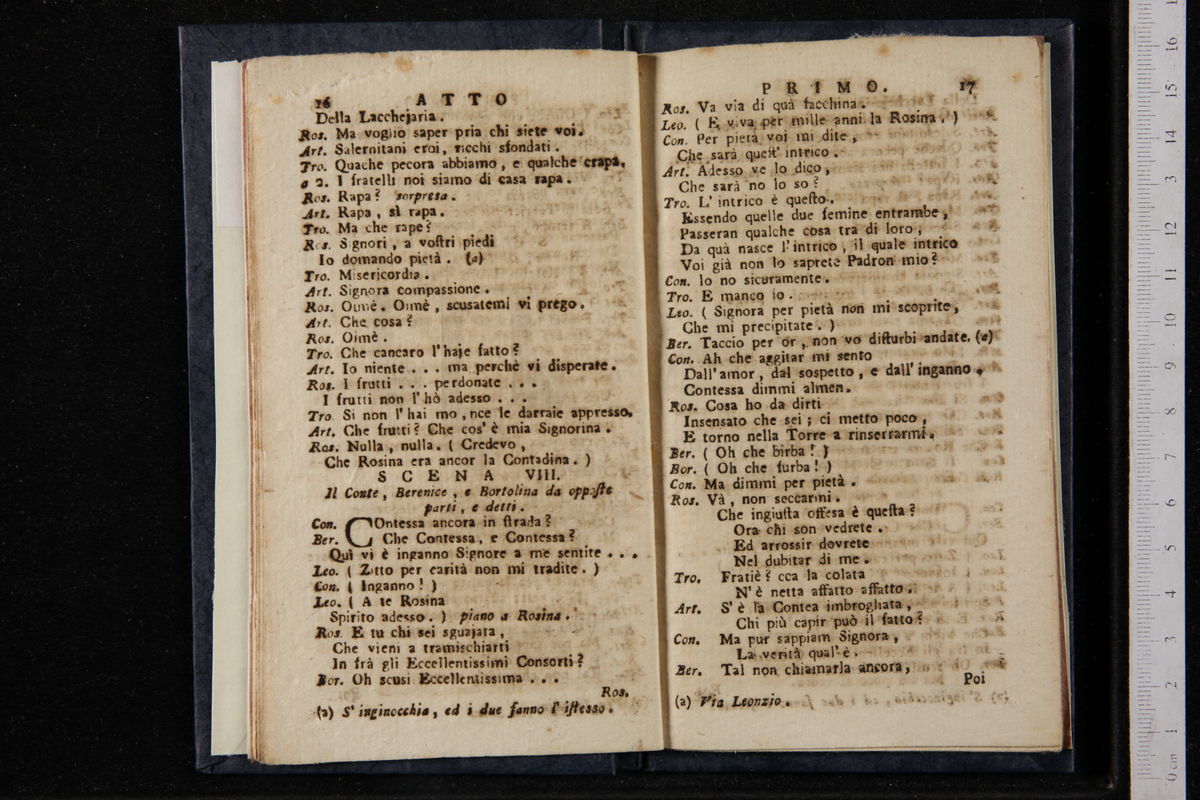 16 ATTO
Della Lacchejaria.
Ros. Ma voglio saper pria chi siete voi.
Art. Salernitani eroi, ricchi sfondati.
Tro. Quache pecora abbiamo, e qualche crapa.
a 2. I fratelli noi siamo di casa rapa.
Ros. Rapa? sorpresa.
Art. Rapa, sì rapa.
Tro. Ma che rape?
Ros. Signori, a voſtri piedi
Io domando pietà. (a)
Tro. Misericordia.
Art. Signora compassione.
Ros. Oimè. Oimè, scusatemi vi prego.
Art. Che cosa?
Ros. Oimè.
Tro. Che cancaro l'haje fatto?
Art. Io niente... ma perchè vi disperate.
Ros. I frutti... perdonate...
I frutti non l'hò adesso...
Tro. Si non l'hai mo, nce le darraie appresso.
Art. Che frutti? Che cos'è mia Signorina.
Ros. Nulla, nulla. (Credevo,
Che Rosina era ancor la Contadina.)
SCENA VIII.
Il Conte, Berenice, e Bortolina da oppoſte
parti, e detti.
Con. COntessa ancora in ſtrada?
Ber. Che Contessa, e Contessa?
Quì vi è inganno Signore a me sentite...
Leo. (Zitto per carità non mi tradite.)
Con. (Inganno!)
Leo. (A te Rosina
Spirito adesso.) piano a Rosina.
Ros. E tu chi sei sguajata,
Che vieni a tramischiarti
In frà gli Eccellentissimi Consorti?
Bor. Oh scusi Eccellentissima...
Ros.
(a) S'inginocchia, ed i due fanno l'iſtesso.
PRIMO. 17
Ros. Va via di quà facchina.
Leo. (E viva per mille anni la Rosina.)
Con. Per pietà voi mi dite,
Che sarà queſt'intrico.
Art. Adesso ve lo dico,
Che sarà no lo so?
Tro. L'intrico è queſto.
Essendo quelle due femine entrambe,
Passeran qualche cosa tra di loro,
Da quà nasce l'intrico, il quale intrico
Voi già non lo saprete Padron mio?
Con. Io no sicuramente.
Tro. E manco io.
Leo. (Signora per pietà non mi scoprite,
Che mi precipitate.)
Ber. Taccio per or, non vo diſturbi andate. (a)
Con. Ah che aggitar mi sento
Dall'amor, dal sospetto, e dall'inganno,
Contessa dimmi almen.
Ros. Cosa ho da dirti
Insensato che sei; ci metto poco,
E torno nella Torre a rinserrarmi.
Ber. (Oh che birba!)
Bor. (Oh che furba!)
Con. Ma dimmi per pietà.
Ros. Và, non seccarmi.
Che ingiuſta offesa è queſta?
Ora chi son vedrete.
Ed arrossir dovrete
Nel dubitar di me.
Tro. Fratiè? cca la colata
N'è netta affatto affatto.
Art. S'è la Contea imbrogliata,
Chi più capir può il fatto?
Con. Ma pur sappiam Signora,
La verità qual'è.
Ber. Tal non chiamarla ancora,
Poi
(a) Via Leonzio.